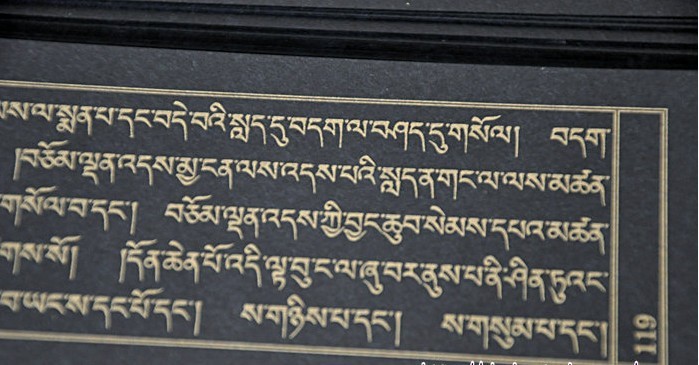 ལས་ལ་སྨན་པ་དང་བདེ་བའི་སླད་དུ་བདག་ལ་བཤད་དུ་གསོལ། བདག་
།བཅོམ་ལྡན་འདས་མྱ་ངན་ལས་འདས་པའི་སླད་ན་གང་ལ་ལས་མཚན་
གསོལ་བ་དང་། བཅོམ་ལྡན་འདས་ཀྱི་བྱང་ཆུབ་སེམས་དཔའ་མཚན་
གས་སོ། །དོན་ཆེན་པོ་འདི་ལྟ་བུ་ང་ལ་ཞུ་བར་ནུས་པ་ནི་ཤིན་ཏུའང་
བ་ཡང་ས་དང་པོ་དང་། ས་གཉིས་པ་དང་། ས་གསུམ་པ་དང་།
119